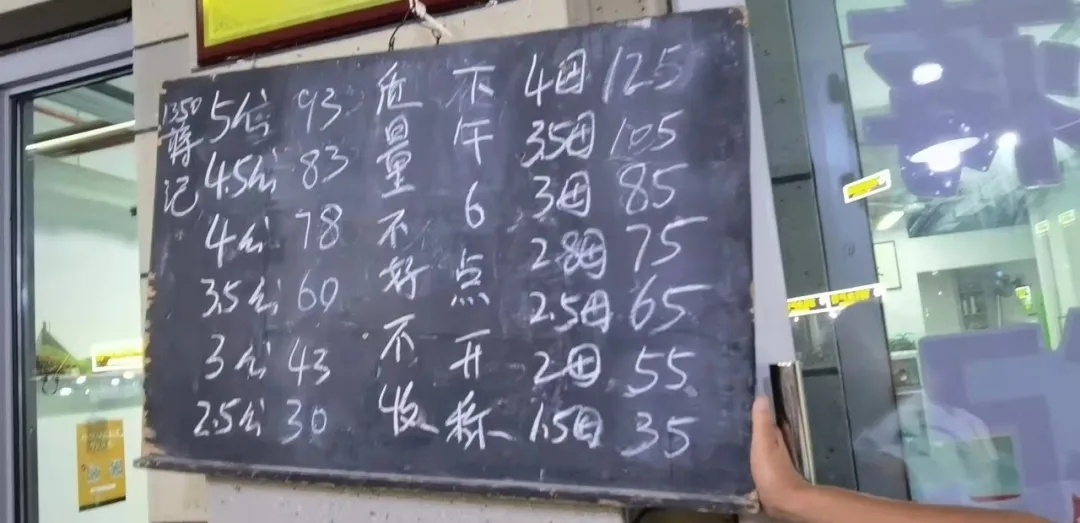 1350
蒋记
5公 93
4.5公 83
4公 78
3.5公 60
3公 43
2.5公 30
质量不好不收
下午6点开称
4母 125
3.5母 105
3母 85
2.8母 75
2.5母 65
2母 55
1.5母 35